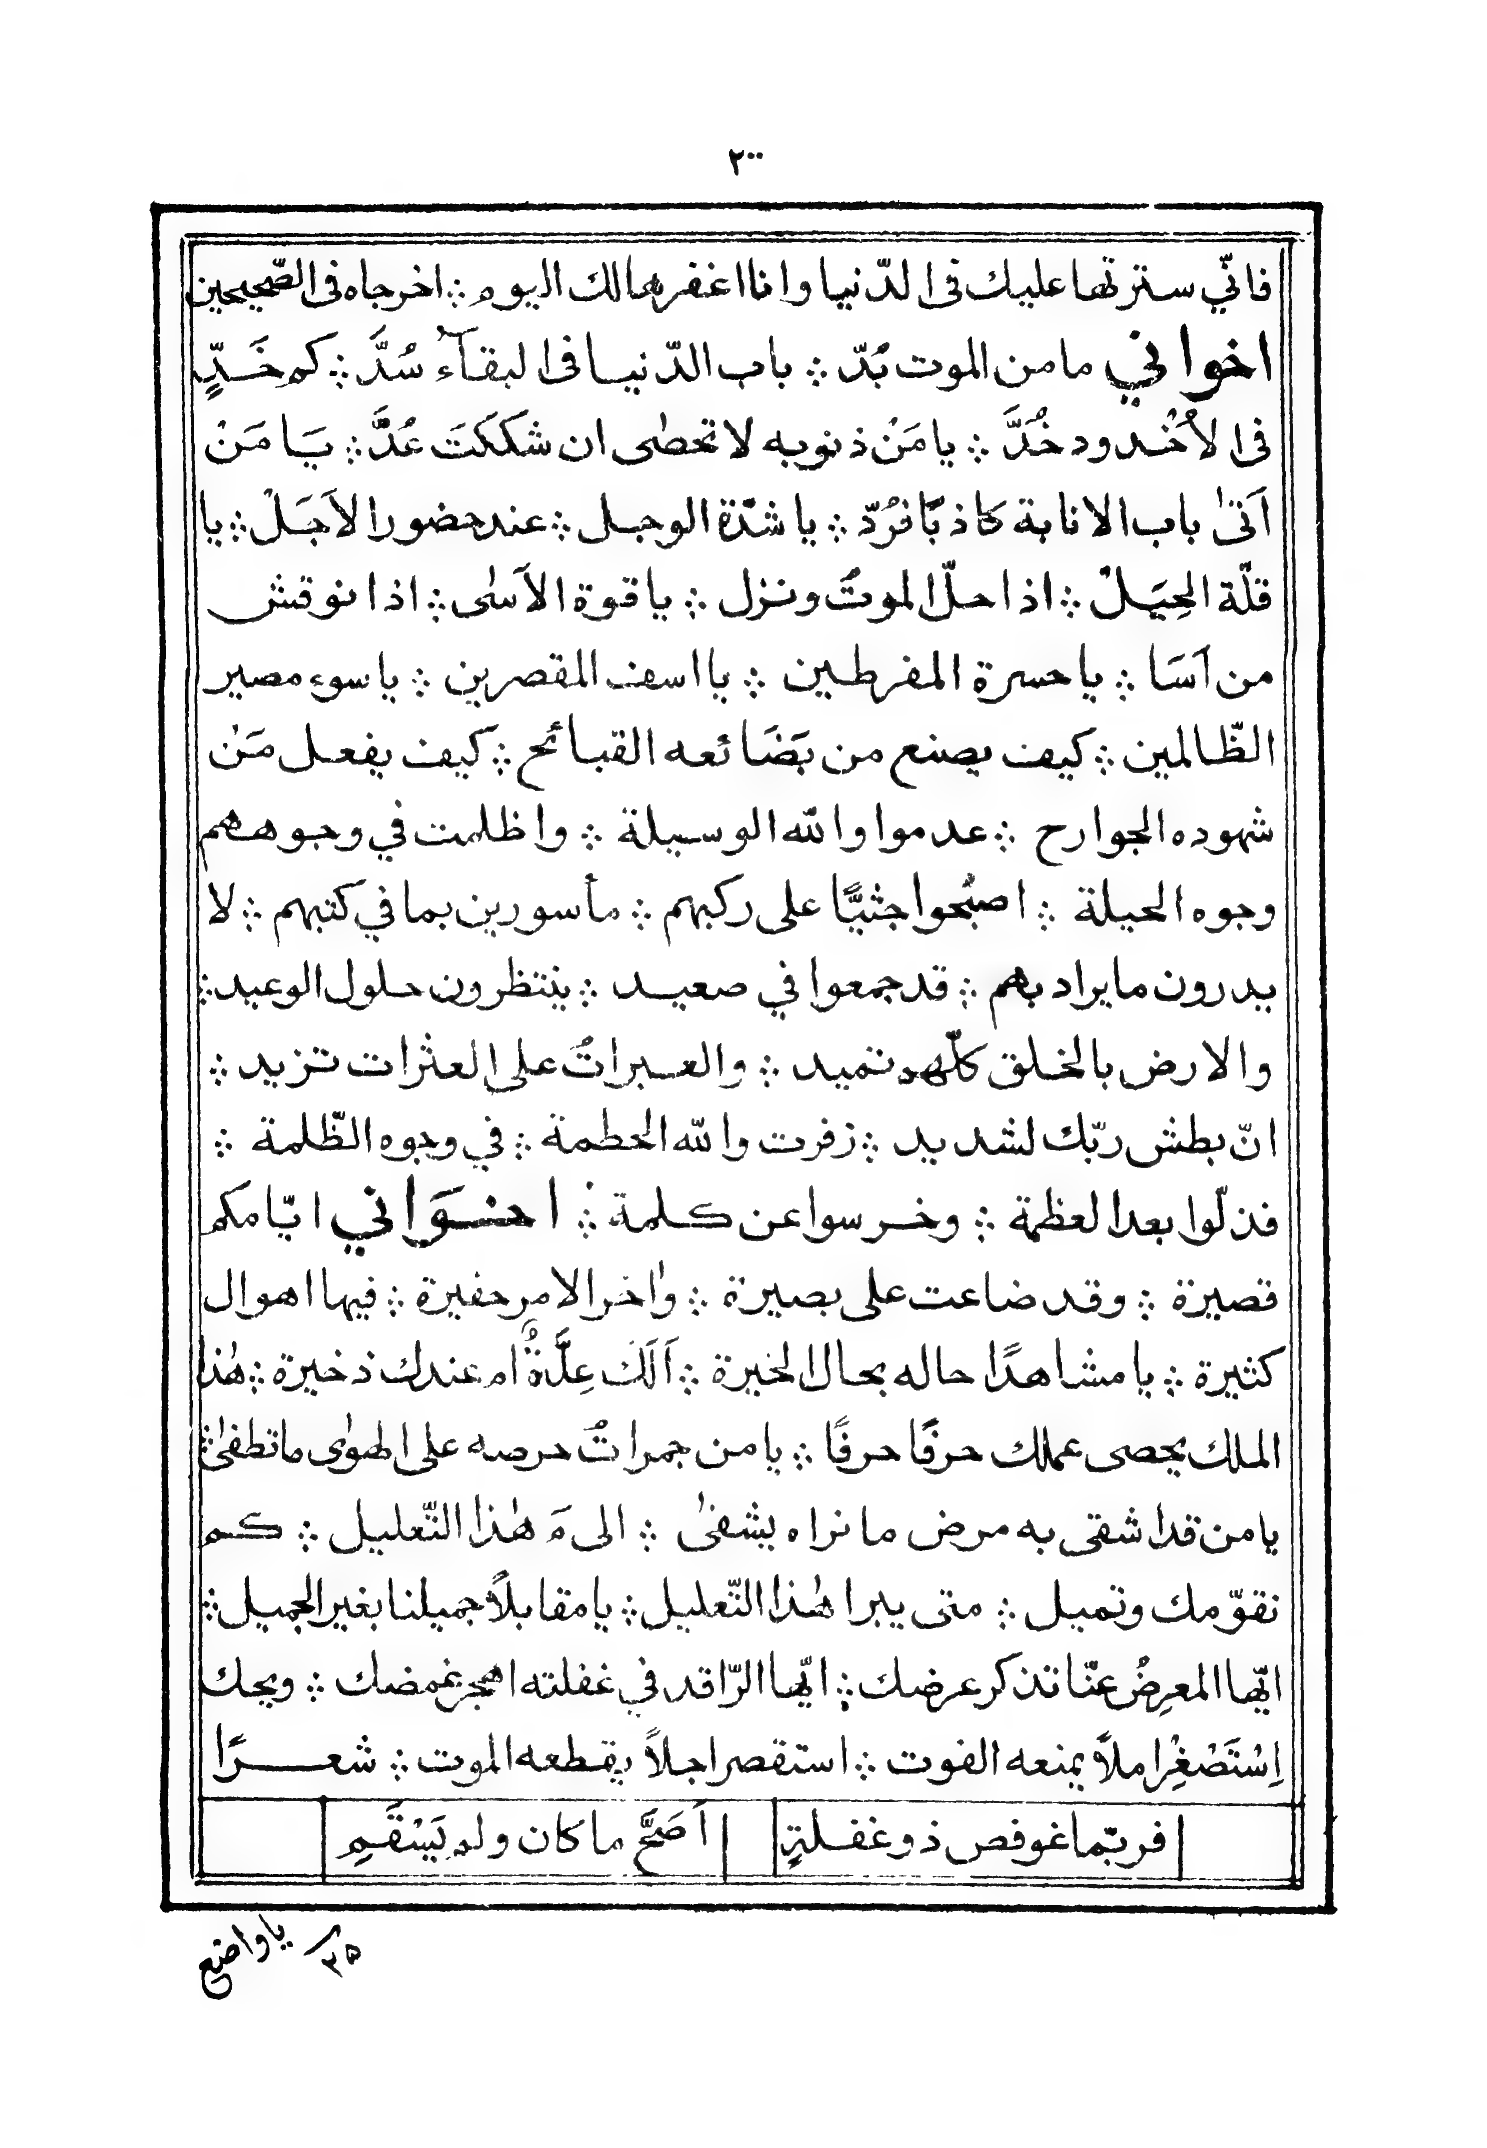 ٢٠٠
فانّي سترتها عليك فى الدّنيا وانا اغفرها لك اليوم ∴ اخرجاه فى الصّحيحين
اخواني ما من الموت بُدّ ∴ باب الدّنيا فى البقآء سُدَّ ∴ كم خَدٍّ
فى الاُخْدود خُدَّ ∴ يا مَنْ ذنوبه لا تحصٰى ان شككتَ عُدَّ ∴ يَا مَنْ
اَتىٰ باب الانابة كاذبًا فرُدّ ∴ يا شدّة الوجل ∴ عند حضور الاَجَلْ ∴ يا
قلّة الحِيَلْ ∴ اذا حلّ الموتُ ونزل ∴ يا قوة الاَسٰى ∴ اذا نوقش
من اَسَا ∴ يا حسرة المفرطين ∴ يا اسف المقصرين ∴ يا سوء مصير
الظّالمين ∴ كيف يصنع من بَضَائعه القبائح ∴ كيف يفعل مَنْ
شهوده الجوارح ∴ عدموا والله الوسيلة ∴ واظلمت في وجوههم
وجوه الحيلة ∴ اصبُحوا جثيًّا على ركبهم ∴ مأسورين بما في كتبهم ∴ لا
يدرون ما يراد بهم ∴ قد جمعوا في صعيد ∴ ينتظرون حلول الوعيد ∴
والارض بالخلق كلّهم تميد ∴ والعبراتُ على العثرات تزيد ∴
انّ بطش ربّك لشديد ∴ زفرت والله الحطمة ∴ في وجوه الظّلمة ∴
فذلّوا بعد العظمة ∴ وخرسوا عن كلمة ∴ اخوَاني ايّامكم
قصيرة ∴ وقد ضاعت على بصيرة ∴ واٰخر الامر حفيرة ∴ فيها اهوال
كثيرة ∴ يا مشاهدًا حاله بحال الخيرة ∴ اَلَكَ عِلَّةٌ ام عندك ذخيرة ∴ هٰذا
الملك يحصى عملك حرفًا حرفًا ∴ يا من جمراتُ حرصه على الهوٰى ما تطفىٰ ∴
يا من قد اشقى به مرض ما نراه يشفىٰ ∴ الى مَ هٰذا التّعليل ∴ كم
نقوّمك وتميل ∴ متى يبرا هٰذا التّعليل ∴ يا مقابلاً جميلنا بغير الجميل ∴
ايّها المعرِضُ عنّا تذكر عرضك ∴ ايّها الرّاقد في غفلته اهجر غمضك ∴ ويحك
اِسْتَصْغِرْ املاً يمنعه الفوت ∴ استقصر اجلاً يقطعه الموت ∴ شعرًا
فربّما غوفص ذو غفلةٍ اَصَحَّ ما كان ولم يَسْقَمِ
٣٥
يا واضع